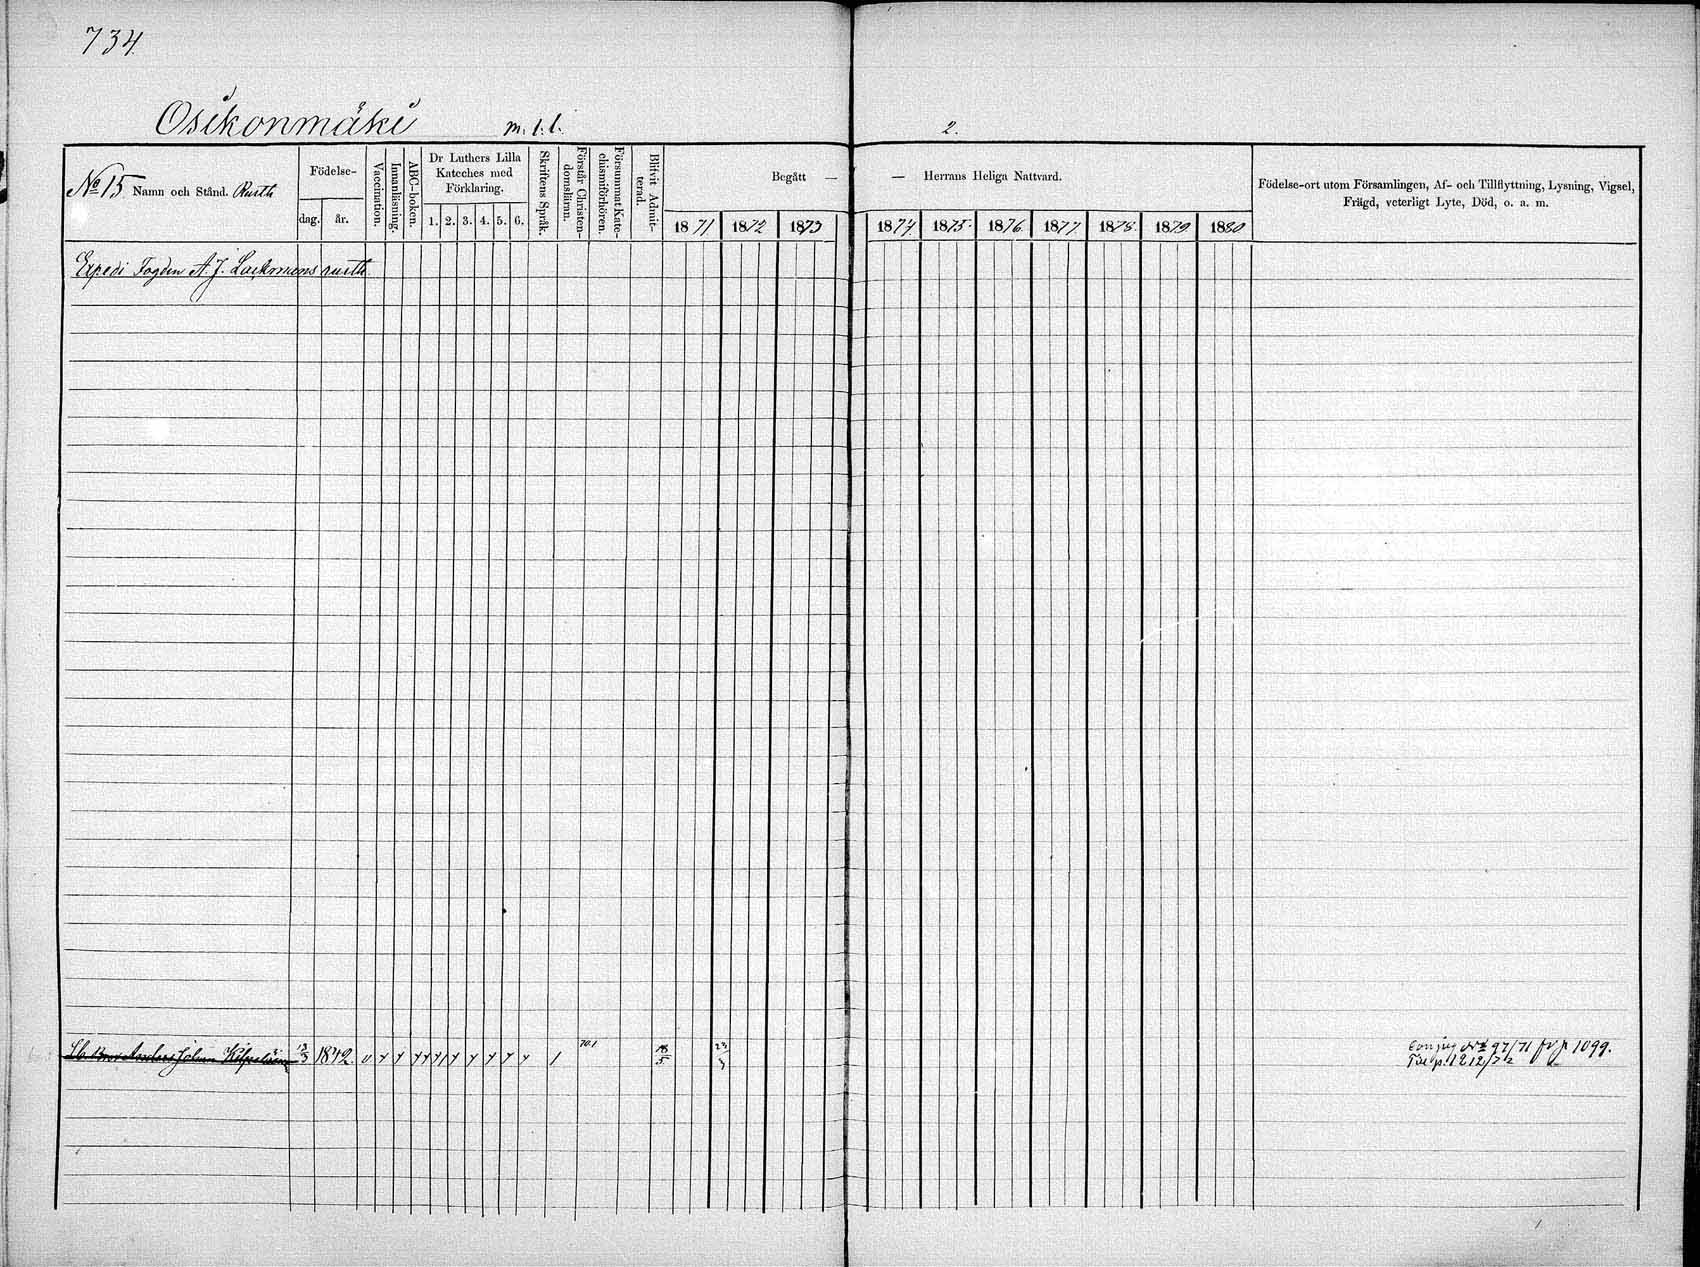 734
Osikonmäki m. l. l. 2.
No 15 Namn och Stånd. Rusth
Födelse-
dag. år.
Vaccination.
Innanläsning.
ABC-boken.
Dr Luthers Lilla
Kateches med
Förklaring.
1. 2. 3. 4. 5. 6.
Skriftens Språk.
Förstår Christen-
domsläran.
Försummat Kate-
chismiförhören.
Blifvit Admit-
terad.
Begått — — Herrans Heliga Nattvard.
1871 1872 1873 1874 1875 1876 1877 1878 1879 1880
Födelse-ort utom Församlingen, Af- och Tillflyttning, Lysning, Vigsel,
Frägd, veterligt Lyte, Död, o. a. m.
Expedi Fogden A. J. Lackmans rusth.
Anders Johan Kilpeläin 13/3 1842. 18/5 23/ 97/71 fr p 1099.
p. 1212/72